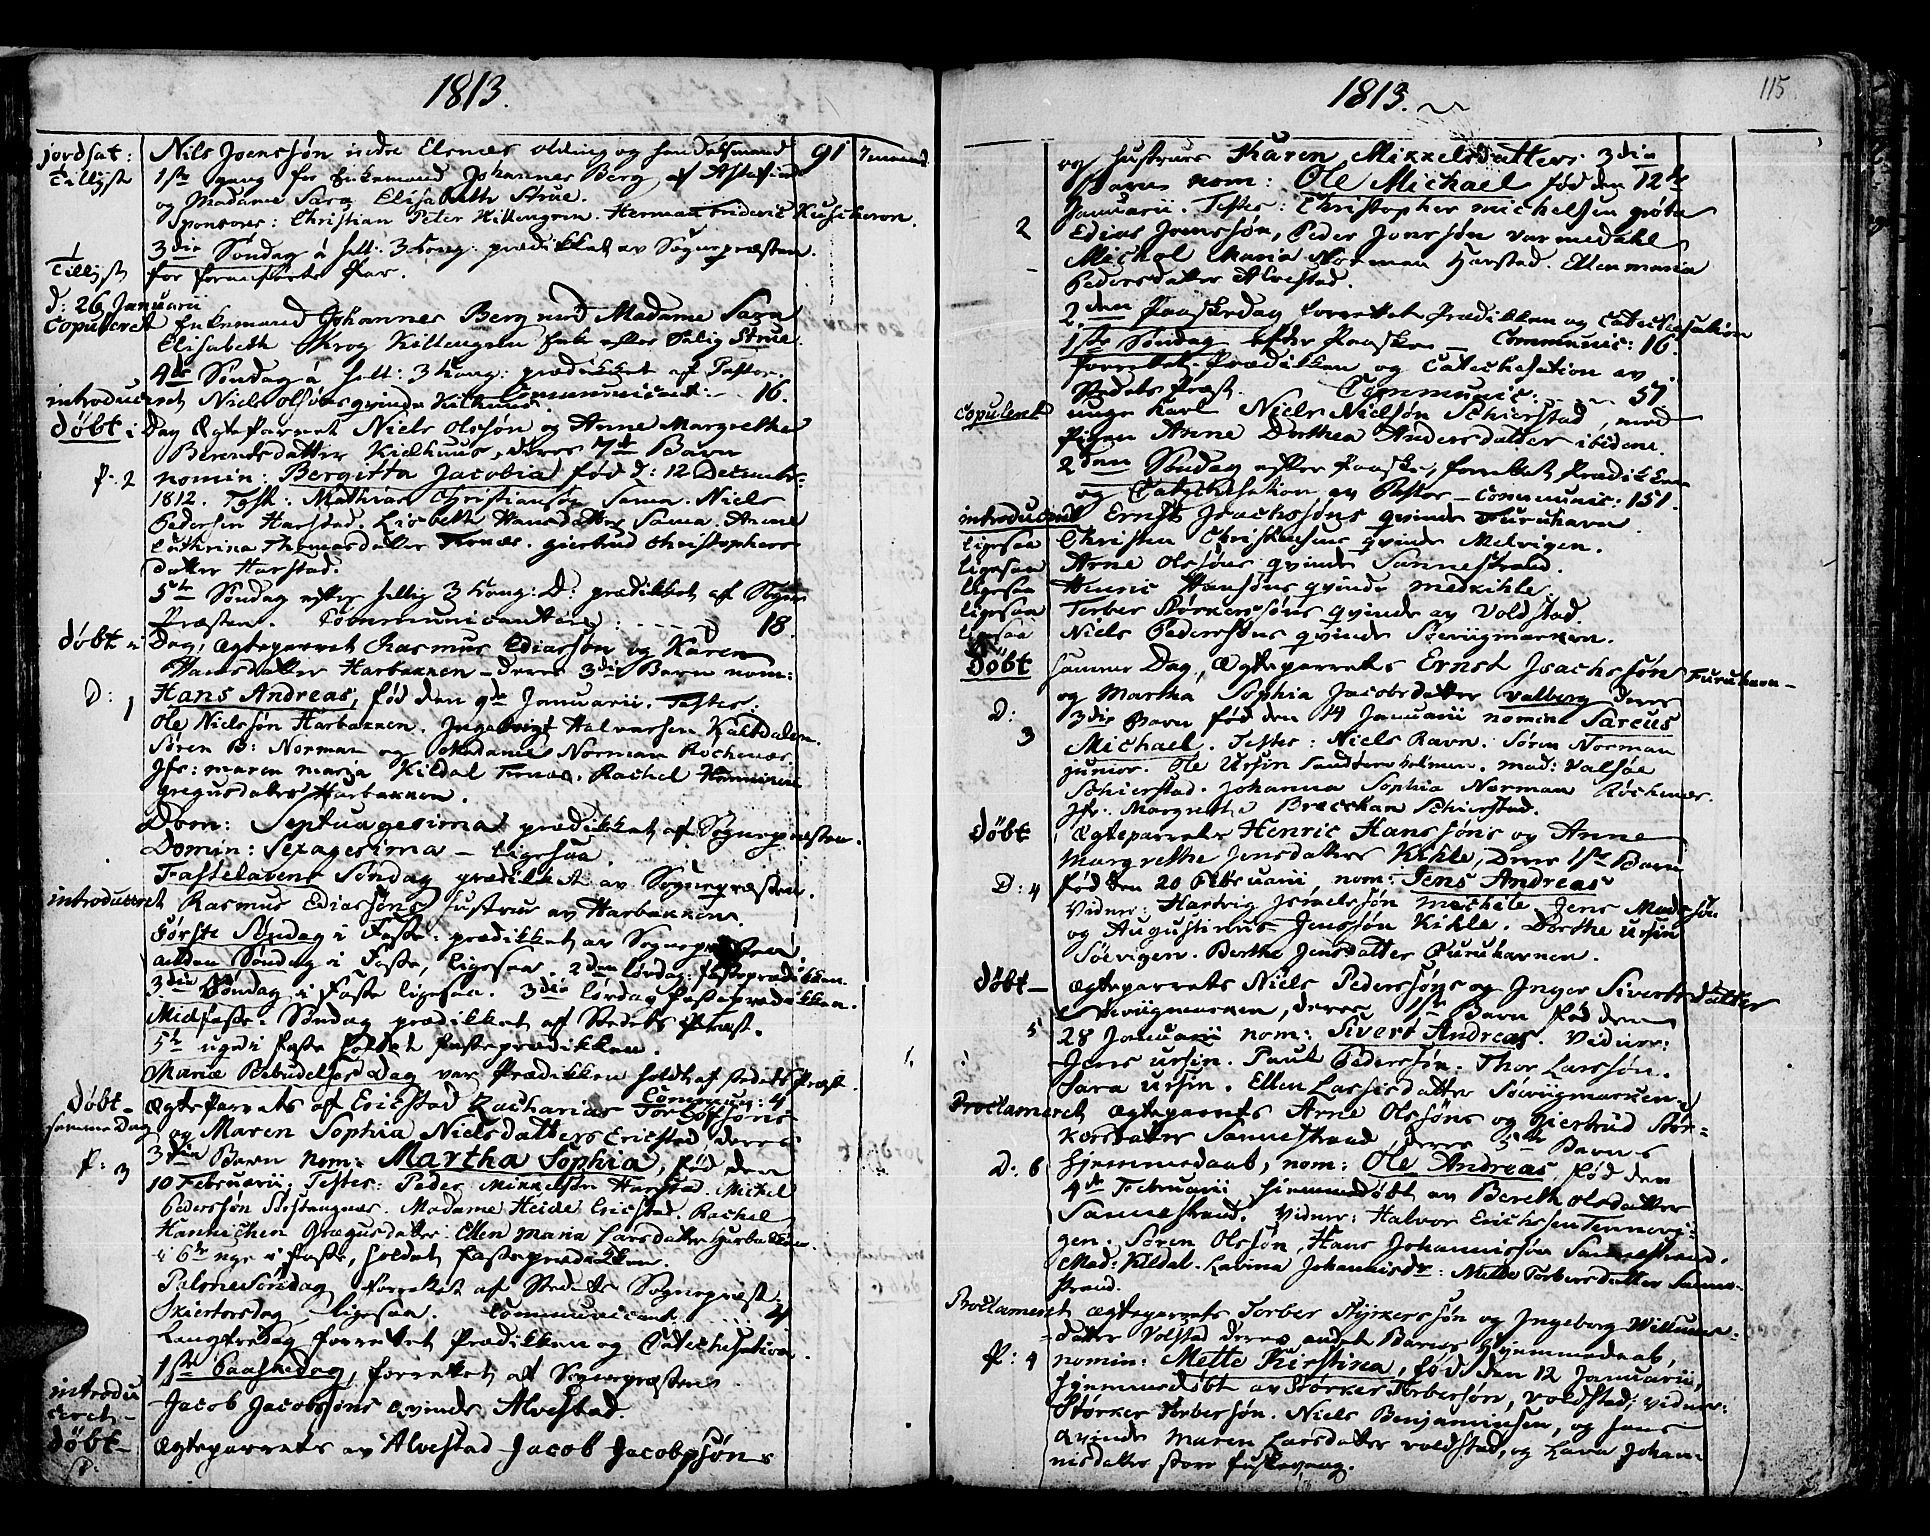 1813.
jordsat: Nils Joenssøn nedre Elsnes olding og handelsmand 91
Tillyst 1ste gang for Enkemand Johannes Berg af
og Madame Sara Elisabeth Strue.
Sponsores: Christian Peter Killengren. Herman Frideric
3die Søndag à hell: 3 kong: prædikket av Sognepræsten.
Tillyst for fornefnte Par.
d: 26 Januarii
Copuleret Enkemand Johannes Berg med Madame Sara
Elisabeth Krog Killengren Enke efter Salig Strue.
4de Søndag à hell: 3 kong: prædikket af Pastor.
Communicant: 16.
introduceret Niels Olsøns qvinde Kielhuus.
døbt i Dag Ægteparret Niels Olssøn og Anne Margrethe
Berentsdatter Kielhuus, deres 7de Barn
P: 2 nomin: Bergitta Jacobia, fød d: 12 Decembr:
1812. Test: Mathias Christiansøn Sama. Niels
Pedersen Harstad. Lisbeth Hansdatter Sama. Anne
Cathrina Thomasdatter Ternæs. Giertrud Christophers
datter Harstad.
5te Søndag efter hellig 3 kong: D: prædikket af Sogne
Præsten. Communicantere: 18.
døbt i Dag, Ægteparret Rasmus Ediassøn og Karen
Hansdatter Harbakken - deres 3die Barn nom:
D: 1 Hans Andreas, fød den 9de Januarii. Testes:
Ole Nielssøn Harbakken. Ingebrigt Halvorsen Kaltdalen.
Søren B: Norman og Madame Norman Rochenæs.
Jfr: maren maria Kildal Ternæs. Rachel
gregusdatter Harbakken.
Dom: Septuagesima prædikket af Sognepræsten.
Domin: Sexagesima - ligesaa.
Fastelavens Søndag prædikket av Sognepræsten.
introduceret Rasmus Ediassøns hustrue av Harbakken.
Første Søndag i Faste: prædikket av Sognepræsten.
anden Søndag i Faste, ligesaa. 2den lørdag: fasteprædikken.
3die Søndag i Faste ligesaa. 3die lørdag fasteprædikken.
Midfaste Søndag prædikket af Stedets Præst.
5te uge i faste holdet fasteprædikken.
Mariæ Bebudelses Dag var Prædikken holdt af stedets Præst.
Commun: 4
døbt - Ægteparrets af Ericstad Zacharias
samme Dag og Maren Sophia Nielsdatters Ericstad deres
P: 3 3die Barn nom: Martha Sophia, fød den
10 Februarii: Testes: Peder Mikkelsen Harstad. Mikel
Pederssøn. Madame Heide Ericstad. Rachel
Hannichen Gregusdatter. Ellen Maria Larsdatter Harbakken.
i 6te uge i Faste, holdet fasteprædikken.
Palmesøndag forrettet af Stedets Sognepræst.
Skiertorsdag ligesaa. Communicant. 4
Langfredag forrettet Prædikken og Catechisation.
1ste Paaskedag, forrettet af Sognepræsten.
introdu
ceret - Jacob Jacobssøns qvinde Alvestad.
døbt - Ægteparrets av Alvestad Jacob Jacobssøns
1813. 115
og hustrues Karen Mikkelsdatters 3die
Barn nom: Ole Michael fød den 12te
Januarii. Testes: Christopher michelsen grøte
2 Edias Joenssøn, Peder Jonssøn varmedahl
Michel Maria Norman Harstad. Ellen maria
Pedersdatter Alvestad.
2den Paaskedag forrettet Prædikken og Catechisation
1ste Søndag efter Paaske - Communic: 16.
forrettet Prædikken og Catechisation av
Stedets Præst. Communic: 57.
Copuleret unge karl Niels Nielsøn Schierstad, med
Pigen Anne Dorthea Andersdatter ibidem.
2den Søndag efter Paaske, forrettet Prædikken
og Catechisation av Pastor - Communic: 151.
introduceret Ernst Isachssøns qvinde Furuhavn.
ligesaa Christen Christensens qvinde Melvigen.
ligesaa Arne Olssøns qvinde Sannestrand.
ligesaa Henric Hansøns qvinde medkihle.
ligesaa Torber Størkerssøns qvinde av Voldstad.
ligesaa Niels Pederssøns qvinde Søvigmarken.
døbt samme Dag, Ægteparrets Ernst Isachssøn Furuhavn -
og Martha Sophia Jacobsdatter valberg deres
D: 3 3die Barn fød den 14 Januarii nomine Sareus
Michael. Testes: Niels Ravn. Søren Norman
junior. Ole Ursin Sandtorvholmen. mad: Valsøe
Schierstad. Johanna Sophia Norman Røchenæs.
Jfr: Margrethe Schierstad.
døbt Ægteparrets Henric Hanssøns og Anne
Margrethe Jensdatters Kihle, deres 1ste Barn
D: 4 fød den 20 Februarii, nom: Jens Andreas
Vidner: Hartvig Israelssøn medkile, Jens Madssøn
og Augustinus Jenssøn Kihle. Dorthe Ursin
Søevigen. Berthe Jensdatter Furuhavnen.
døbt - Ægteparrets Niels Pederssøns og Inger Sivertsdatter
Søviigmarken, deres 1ste Barn fød den
5 28 Januarii nom: Sivert Andreas. Vidner:
Jens Ursin. Paul Pederssøn. Thor Larssøn.
Sara Ursin. Ellen Larsisdatter Søviigmarken.
Proclameret Ægteparrets Arne Olssøns og Giertrud Stør-
kersdatter Sannestrand, deres 5te Barns
D: 6 hjemmedaab, nom: Ole Andreas fød den
4de Februarii hiemmedøbt av Bereth Olsdatter
Sannestrand. Vidner: Halvor Erichssen Tennevi-
gen. Søren Olssøn, Hans Johannissøn Sannestrand.
Mad: Kildal. Lavina Johannisdr: Mette Torbersdatter Sanne-
strand.
Proclameret Ægteparrets Torber Styrkerssøn og Ingeborg Willums-
datter Volstad deres andet Barns hjemmedaab,
P: 4 nomin: Mette Kirstina, fød den 12 Januarii,
hjemmedøbt av Størker Torbersøn, Voldstad; vidner:
Størker Torbersøn. Niels Benjaminsen, og hans
qvinde Maren Larsdatter voldstad, og Lava Johan-
nisdatter store